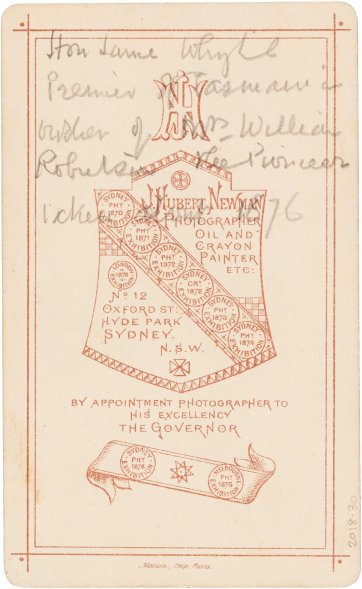 Hon Jame Whyte
Premier of Tasmania
brother of Mrs William
Robertson the Pioneer
taken about 1876
J. HUBERT NEWMAN
PHOTOGRAPHER
OIL AND
CRAYON
PAINTER
ETC:
SYDNEY PHY 1870 EXHIBITION
SYDNEY PHY 1871 EXHIBITION
SYDNEY PHY 1872 EXHIBITION
SYDNEY CRY 1872 EXHIBITION
SYDNEY PHY 1873 EXHIBITION
SYDNEY PHY 1874 EXHIBITION
LONDON 1873 EXHIBITION
No 12
OXFORD ST:
HYDE PARK
SYDNEY.
N.S.W.
BY APPOINTMENT PHOTOGRAPHER TO
HIS EXCELLENCY
THE GOVERNOR
SYDNEY PHY 1875 EXHIBITION
MELBOURNE PHY 1875 EXHIBITION
Marion, Imp. Paris.
2018.30